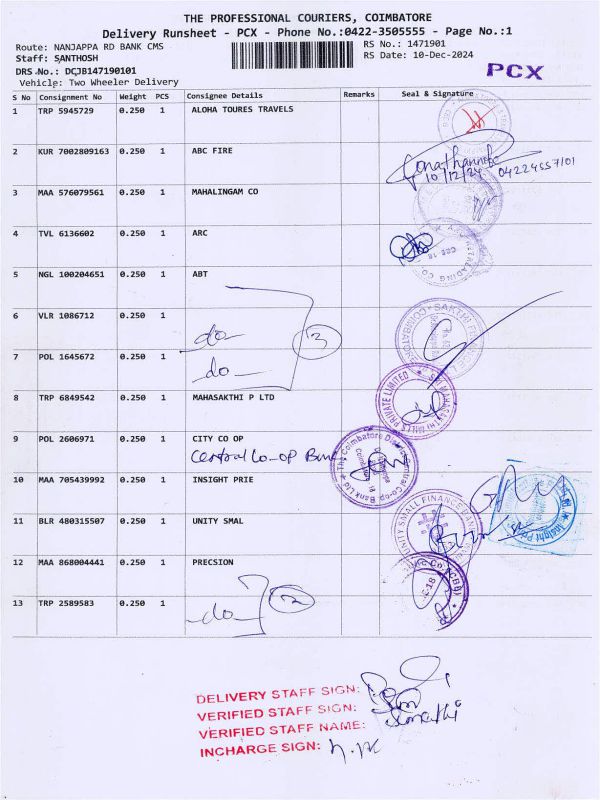 THE PROFESSIONAL COURIERS, COIMBATORE
Delivery Runsheet - PCX - Phone No.:0422-3505555 - Page No.:1
Route: NANJAPPA RD BANK CMS
RS No.: 1471901
Staff: SANTHOSH
RS Date: 10-Dec-2024
DRS No.: DCJB147190101
PCX
Vehicle: Two Wheeler Delivery
S No Consignment No Weight PCS Consignee Details Remarks Seal & Signature
1 TRP 5945729 0.250 1 ALOHA TOURES TRAVELS
2 KUR 7002809163 0.250 1 ABC FIRE
10/12/24 04224557101
3 MAA 576079561 0.250 1 MAHALINGAM CO
4 TVL 6136602 0.250 1 ARC
5 NGL 100204651 0.250 1 ABT
6 VLR 1086712 0.250 1
do
3
7 POL 1645672 0.250 1
do
8 TRP 6849542 0.250 1 MAHASAKTHI P LTD
SRI MAHASAKTHI MILLS PRIVATE LIMITED
9 POL 2606971 0.250 1 CITY CO OP
Central Co-op Bank
The Coimbatore District Central Co-op Bank Ltd
10 MAA 705439992 0.250 1 INSIGHT PRIE
11 BLR 480315507 0.250 1 UNITY SMAL
UNITY SMALL FINANCE BANK
12 MAA 868004441 0.250 1 PRECSION
do
2
13 TRP 2589583 0.250 1
DELIVERY STAFF SIGN:
VERIFIED STAFF SIGN:
VERIFIED STAFF NAME: Sumathi
INCHARGE SIGN: